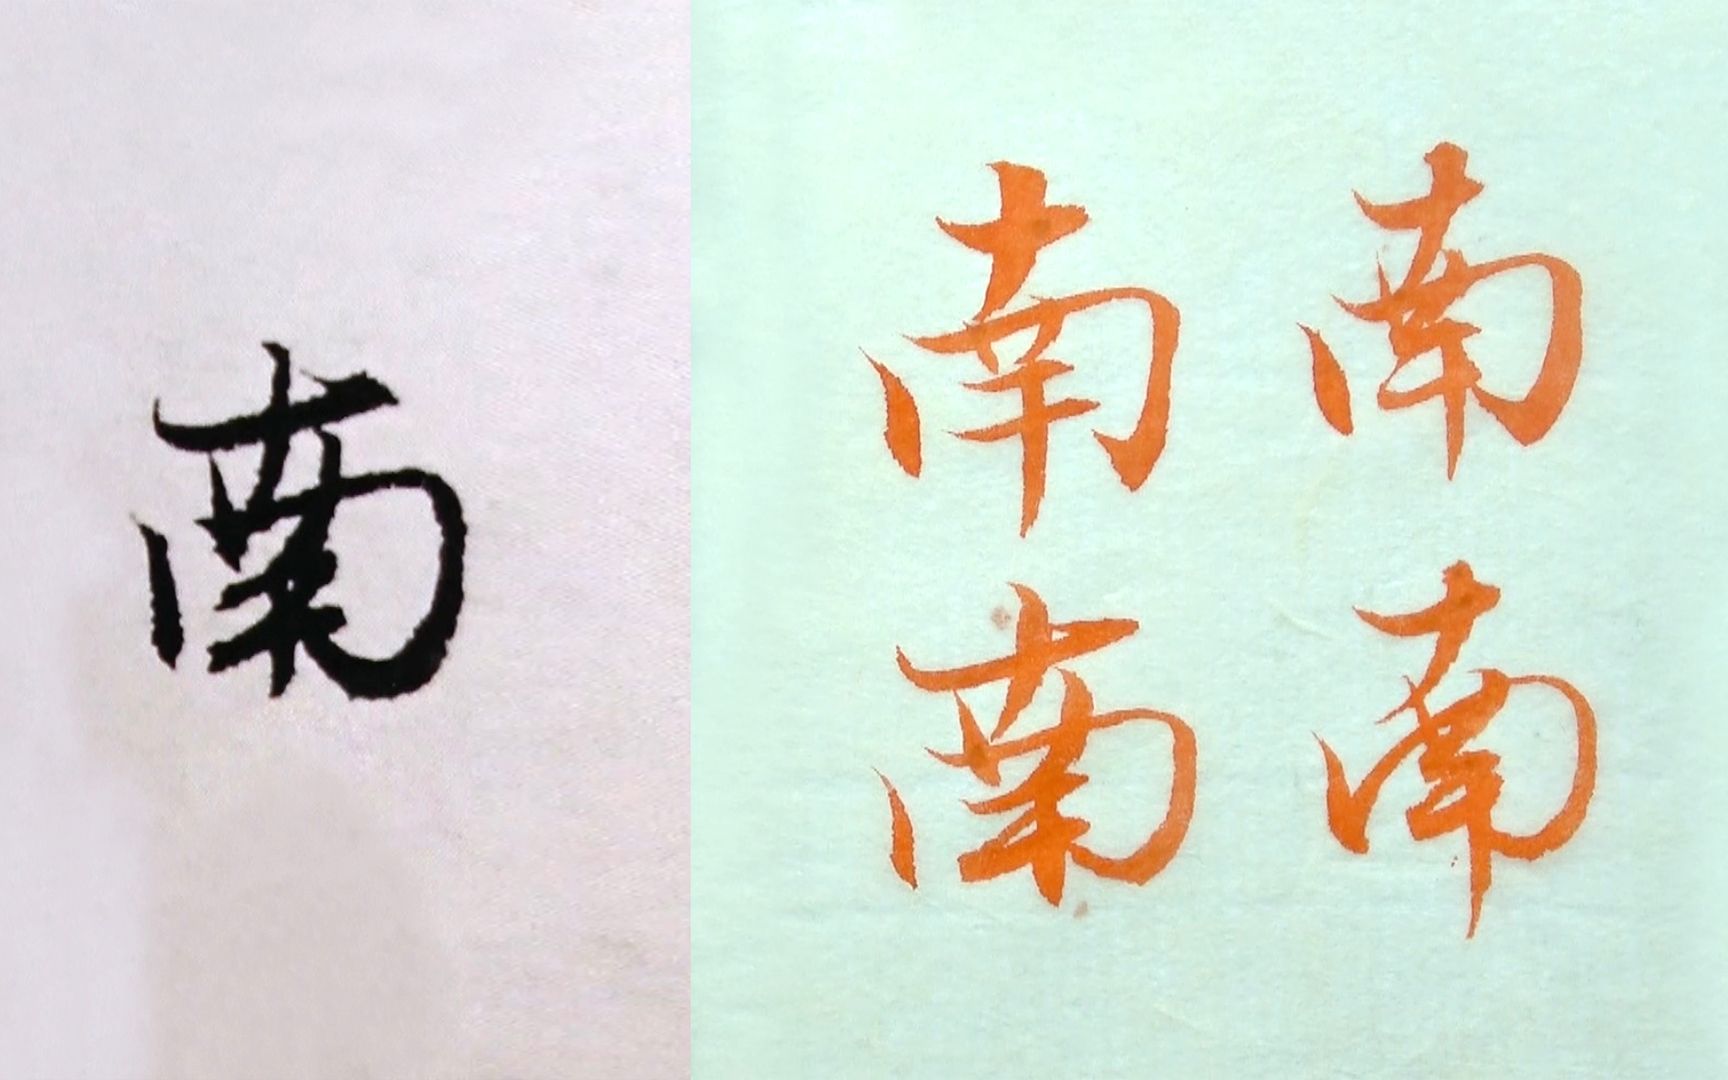 南
南 南
南 南